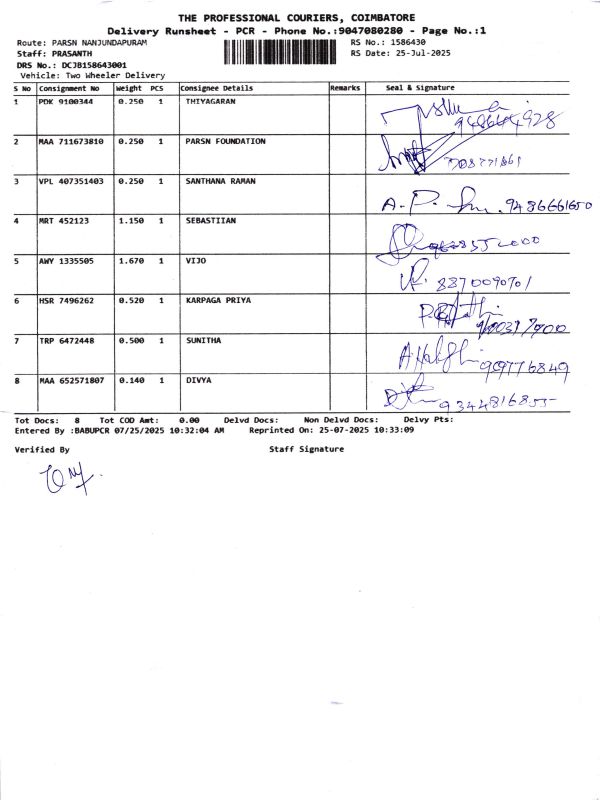 THE PROFESSIONAL COURIERS, COIMBATORE
Delivery Runsheet - PCR - Phone No.:9047080280 - Page No.:1
Route: PARSN NANJUNDAPURAM RS No.: 1586430
Staff: PRASANTH RS Date: 25-Jul-2025
DRS No.: DCJB158643001
Vehicle: Two Wheeler Delivery
S No Consignment No Weight PCS Consignee Details Remarks Seal & Signature
1 PDK 9100344 0.250 1 THIYAGARAN
2 MAA 711673810 0.250 1 PARSN FOUNDATION
3 VPL 407351403 0.250 1 SANTHANA RAMAN 9486661650
4 MRT 452123 1.150 1 SEBASTIIAN
5 AWY 1335505 1.670 1 VIJO 8870090701
6 HSR 7496262 0.520 1 KARPAGA PRIYA
7 TRP 6472448 0.500 1 SUNITHA
8 MAA 652571807 0.140 1 DIVYA 9344816855
Tot Docs: 8 Tot COD Amt: 0.00 Delvd Docs: Non Delvd Docs: Delvy Pts:
Entered By :BABUPCR 07/25/2025 10:32:04 AM Reprinted On: 25-07-2025 10:33:09
Verified By Staff Signature